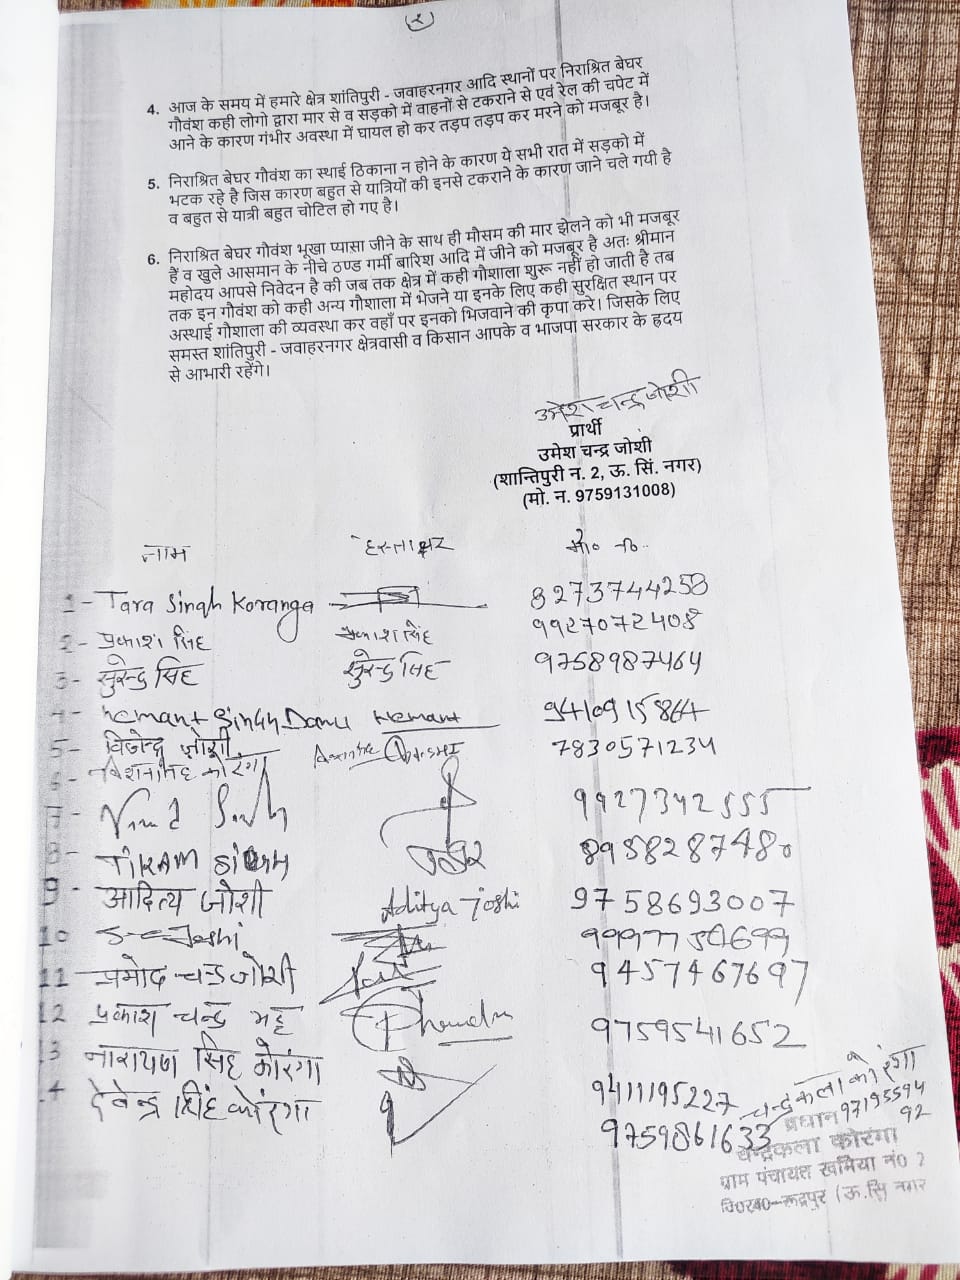 (2)
4. आज के समय में हमारे क्षेत्र शांतिपुरी - जवाहरनगर आदि स्थानों पर निराश्रित बेघर
गौवंश कही लोगो द्वारा मार से व सड़को में वाहनों से टकराने से एवं रेल की चपेट में
आने के कारण गंभीर अवस्था में घायल हो कर तड़प तड़प कर मरने को मजबूर है।
5. निराश्रित बेघर गौवंश का स्थाई ठिकाना न होने के कारण ये सभी रात में सड़को में
भटक रहे है जिस कारण बहुत से यात्रियों की इनसे टकराने के कारण जाने चले गयी है
व बहुत से यात्री बहुत चोटिल हो गए है।
6. निराश्रित बेघर गौवंश भूखा प्यासा जीने के साथ ही मौसम की मार झेलने को भी मजबूर
हैं व खुले आसमान के नीचे ठण्ड गर्मी बारिश आदि में जीने को मजबूर है अतः श्रीमान
महोदय आपसे निवेदन है की जब तक क्षेत्र में कही गौशाला शुरू नहीं हो जाती है तब
तक इन गौवंश को कही अन्य गौशाला में भेजने या इनके लिए कही सुरक्षित स्थान पर
अस्थाई गौशाला की व्यवस्था कर वहाँ पर इनको भिजवाने की कृपा करे। जिसके लिए
समस्त शांतिपुरी - जवाहरनगर क्षेत्रवासी व किसान आपके व भाजपा सरकार के ह्रदय
से आभारी रहेंगे।
उमेश चन्द्र जोशी
प्रार्थी
उमेश चन्द्र जोशी
(शान्तिपुरी न. 2, ऊ. सिं. नगर)
(मो. न. 9759131008)
नाम हस्ताक्षर मो० न०
1- Tara Singh Koranga 8273744258
2- प्रकाश सिंह प्रकाश सिंह 9927072408
3- सुरेन्द्र सिंह सुरेन्द्र सिंह 9758987464
4- Hemant Singh Danu Hemant 9410915864
5- विजेन्द्र जोशी 7830571234
6- कोरंगा
7- Singh 9927342555
8- TIKAM SINGH 8958287480
9- आदित्य जोशी Aditya Joshi 9758693007
10 Joshi
11- प्रमोद चन्द्र जोशी 9457467697
12 प्रकाश चन्द्र भट्ट 9759541652
13 नारायण सिंह कोरंगा 9411195227
14 देवेन्द्र सिंह कोरंगा 9759861633
चन्द्रकला कोरंगा
प्रधान 97195594
92
चन्द्रकला कोरंगा
ग्राम पंचायत खमिया नं० 2
वि०ख०-रूद्रपुर (ऊ.सि नगर